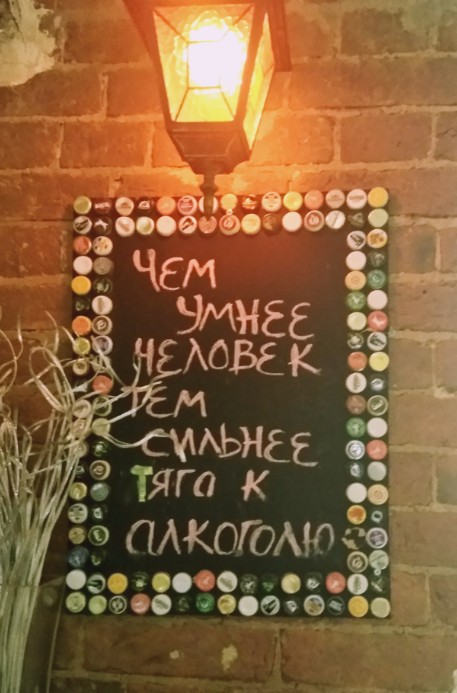 ЧЕМ
УМНЕЕ
ЧЕЛОВЕК
ТЕМ
СИЛЬНЕЕ
ТЯГА К
АЛКОГОЛЮ